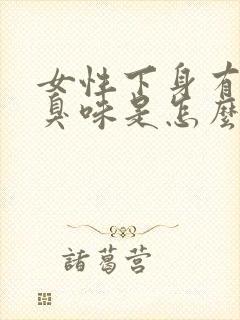 女性下身有
臭味是怎麼
諸葛营